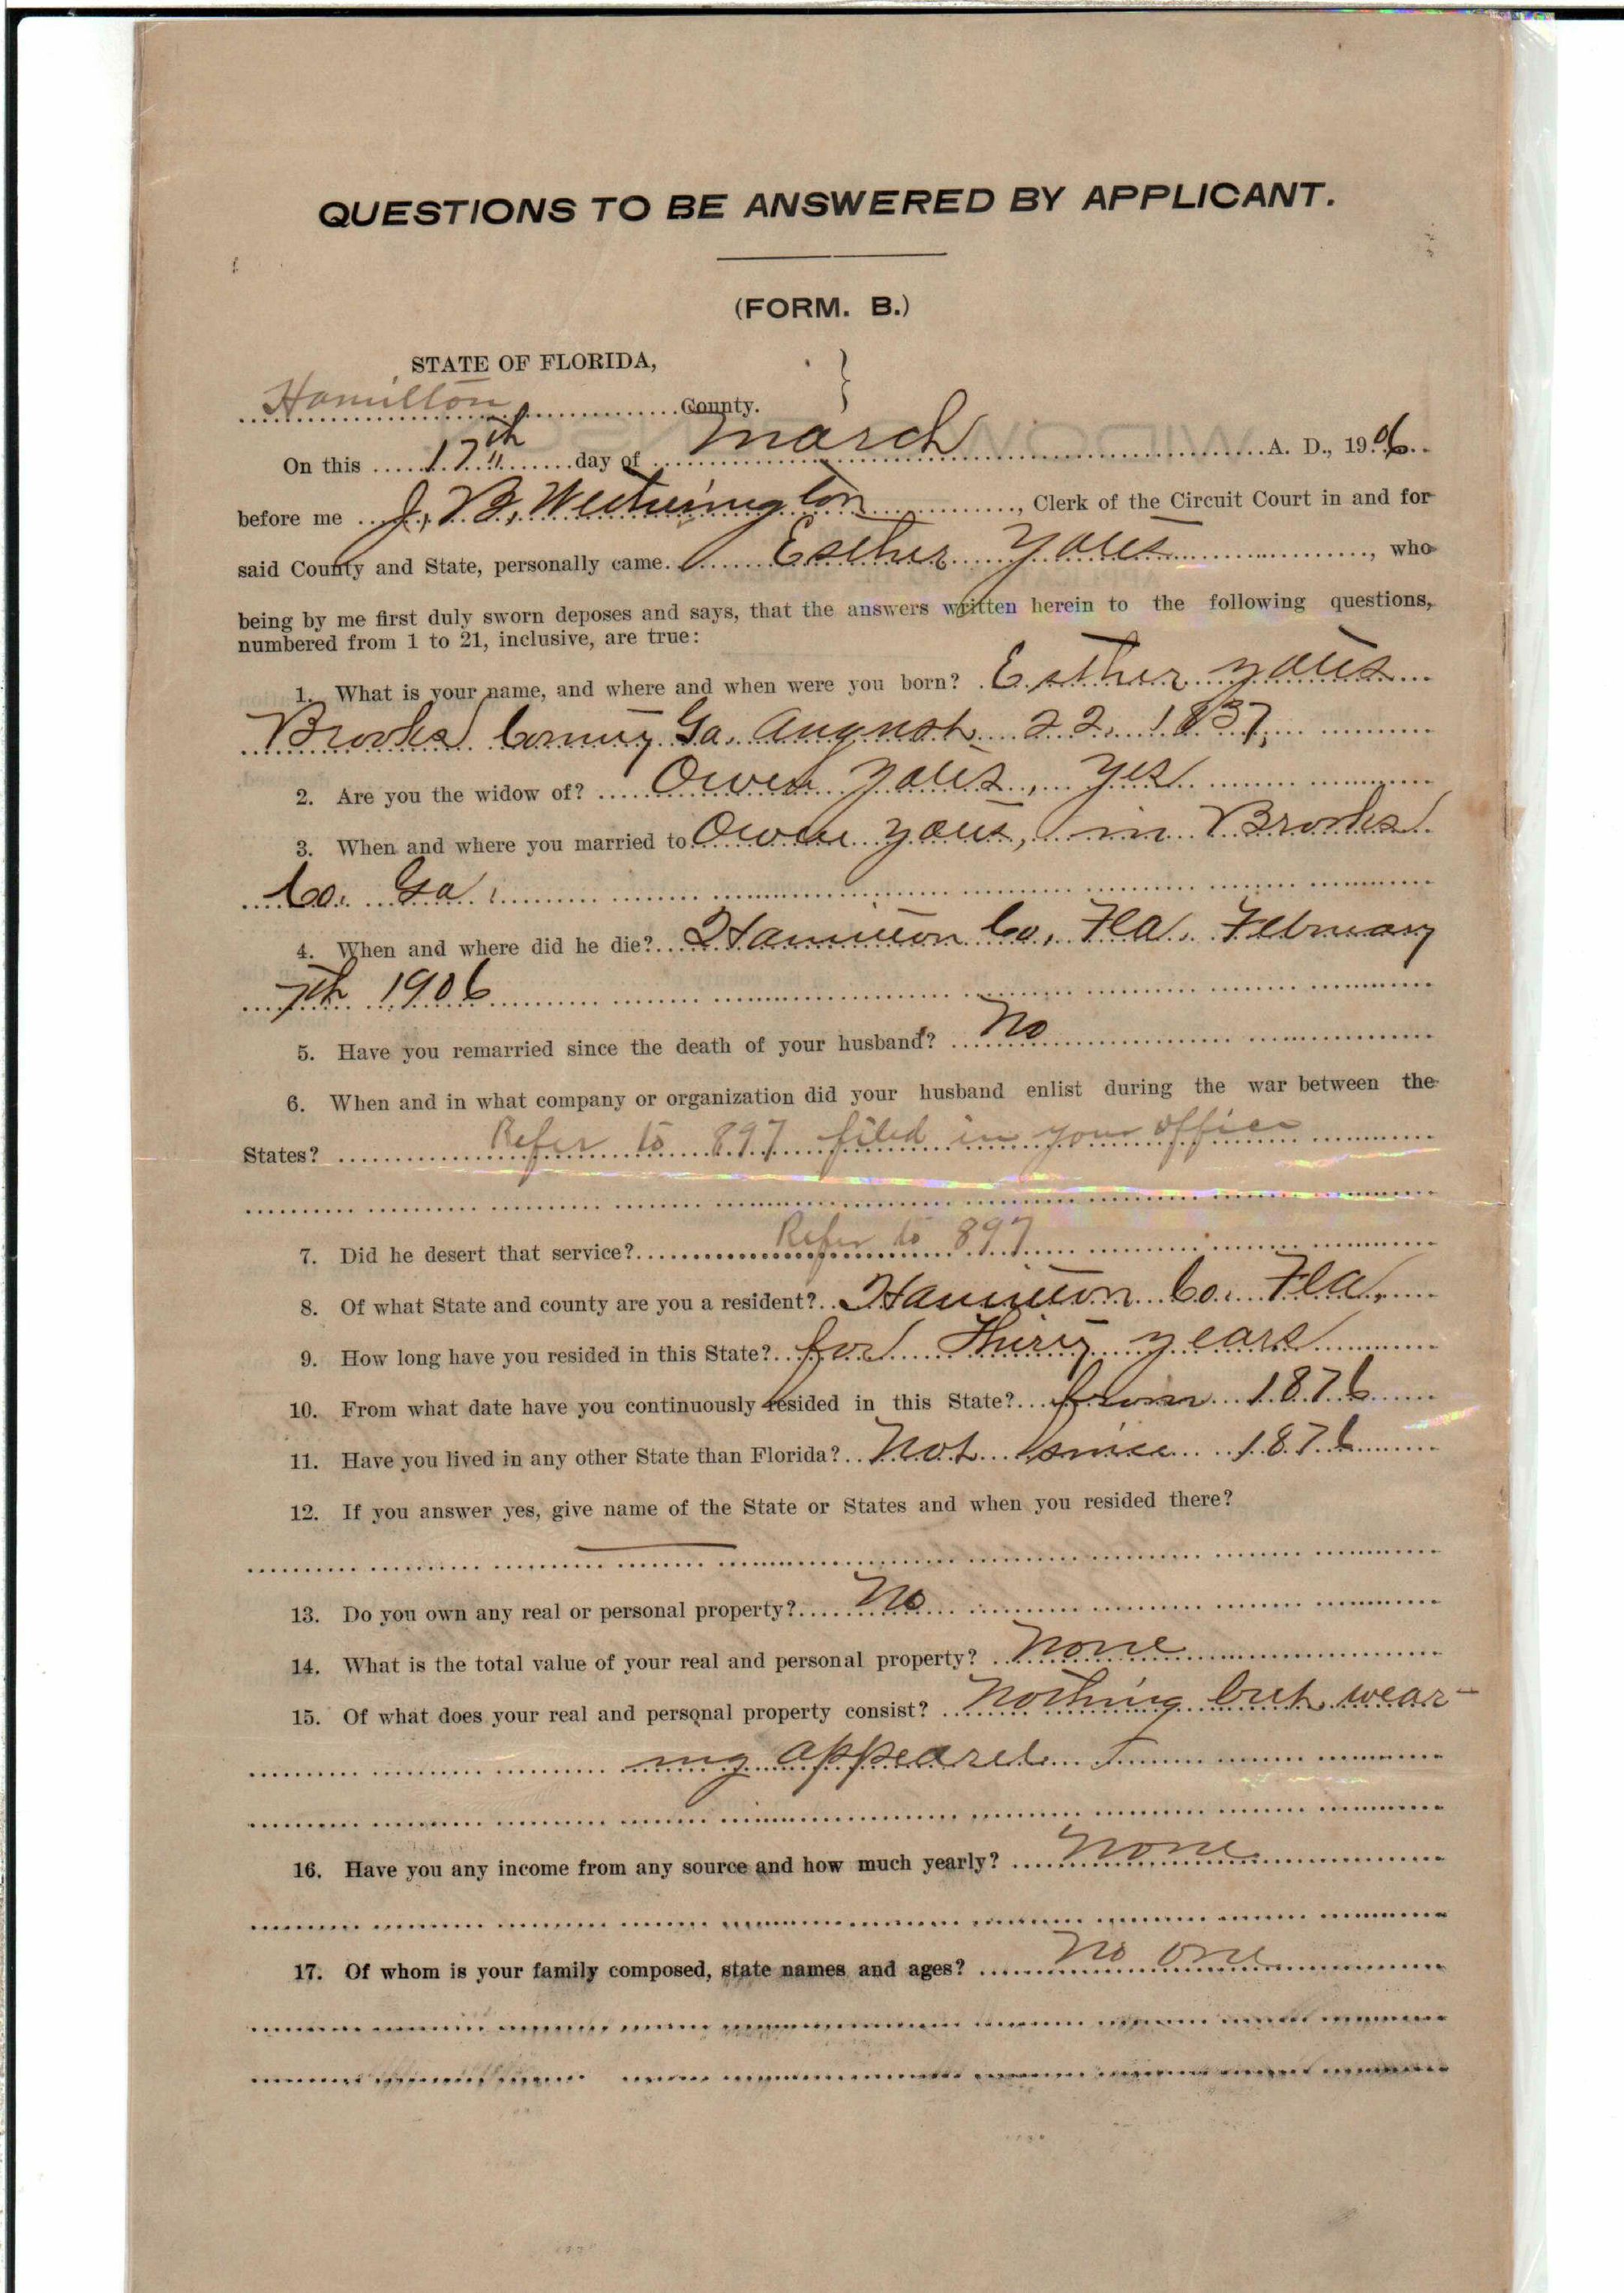 QUESTIONS TO BE ANSWERED BY APPLICANT.
(FORM. B.)
STATE OF FLORIDA,
Hamilton County.
On this 17th day of March A. D., 1906
before me J. B. Wetherington, Clerk of the Circuit Court in and for
said County and State, personally came Esther Yates, who
being by me first duly sworn deposes and says, that the answers written herein to the following questions,
numbered from 1 to 21, inclusive, are true:
1. What is your name, and where and when were you born? Esther Yates
Brooks County Ga. August 22, 1837,
2. Are you the widow of? Owen Yates, yes
3. When and where you married to Owen Yates, in Brooks
Co. Ga.
4. When and where did he die? Hamilton Co. Fla. February
7th 1906
5. Have you remarried since the death of your husband? No
6. When and in what company or organization did your husband enlist during the war between the
States? Refer to 897 filed in your office
7. Did he desert that service? Refer to 897
8. Of what State and county are you a resident? Hamilton Co. Fla.
9. How long have you resided in this State? for Thirty years
10. From what date have you continuously resided in this State? from 1876
11. Have you lived in any other State than Florida? Not since 1876
12. If you answer yes, give name of the State or States and when you resided there?
13. Do you own any real or personal property? No
14. What is the total value of your real and personal property? None
15. Of what does your real and personal property consist? Nothing but wear-
ing appearel
16. Have you any income from any source and how much yearly? None
17. Of whom is your family composed, state names and ages? No one